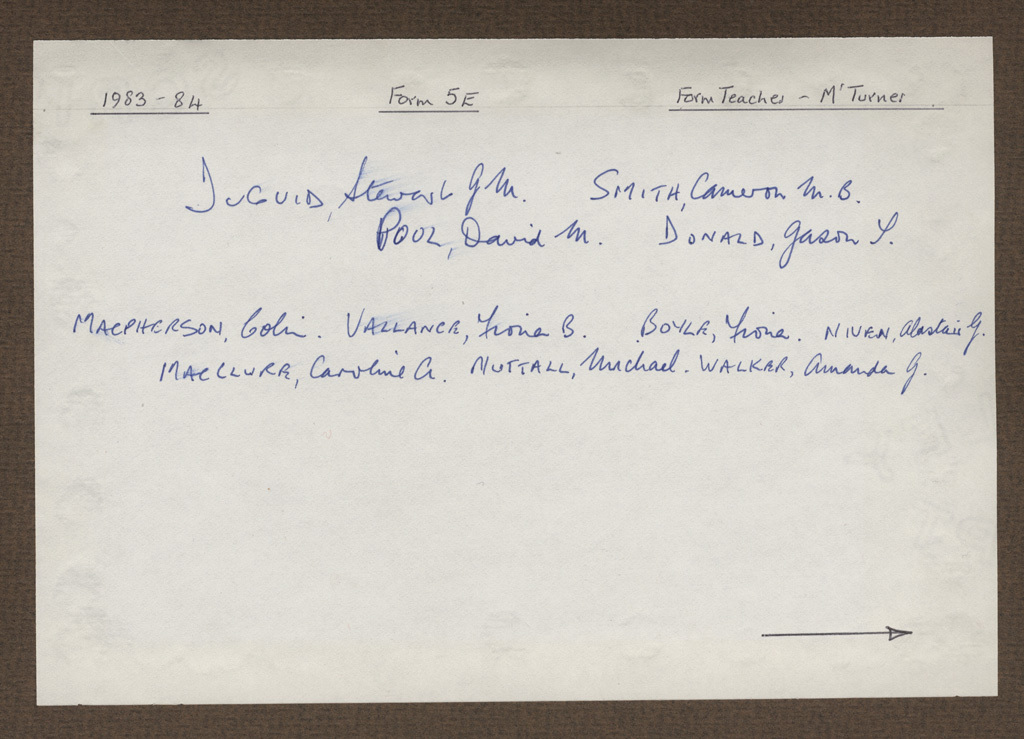 1983-84 Form 5E Form Teacher - Mr Turner
DUGUID, Stewart G M. SMITH, Cameron M. B.
POOL, David M. DONALD, Jason S.
MACPHERSON, Colin. VALLANCE, Fiona B. BOYLE, Fiona. NIVEN, Alastair G.
MACCLURE, Caroline A. NUTTALL, Michael. WALKER, Amanda G.